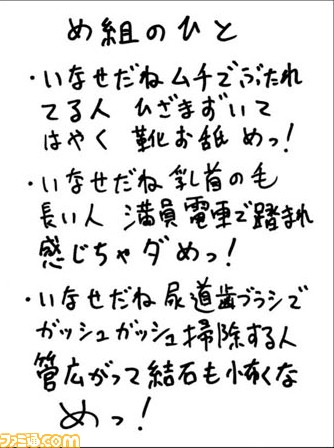 め組のひと
・いなせだね ムチでぶたれ
てる人 ひざまずいて
はやく 靴お舐 めっ!
・いなせだね 乳首の毛
長い人 満員電車で踏まれ
感じちゃダめっ!
・いなせだね 尿道歯ブラシで
ガッシュガッシュ掃除する人
管広がって結石も怖くな
めっ!
ファミ通.com